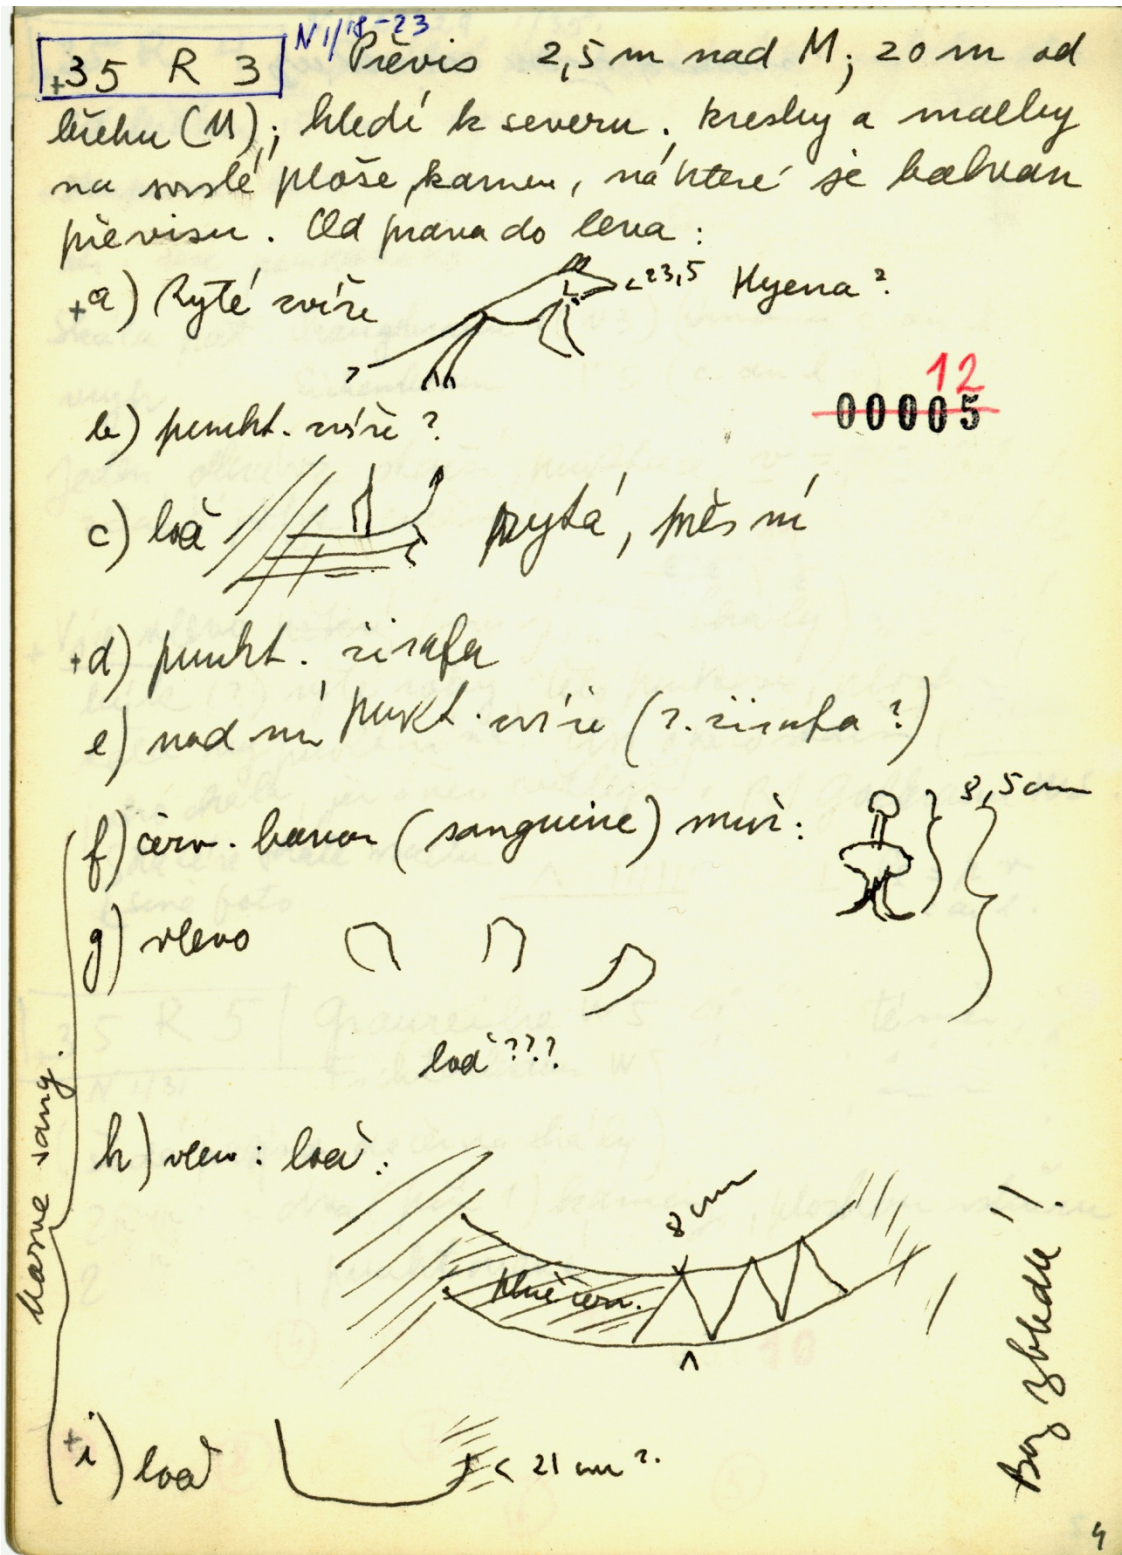 N 1/18-23
+35 R 3 Převis 2,5 m nad M; 20 m od
břehu (M); hledí k severu. kresby a malby
na svislé ploše kamen, na které je balvan
převisu. Od prava do leva:
+a) Ryté zvíře <23,5 Hyena?
12
00005
b) punkt. zvíře?
c) loď rytá,
+d) punkt. žirafa
e) nad ní punkt. zvíře (ž. žirafa?)
f) červ. barvou (sanguine) muž: 8,5 cm
g) vlevo
loď???
h) vlevo: loď:
8 cm
plně červ.
+i) loď < 21 cm?
sang.
4